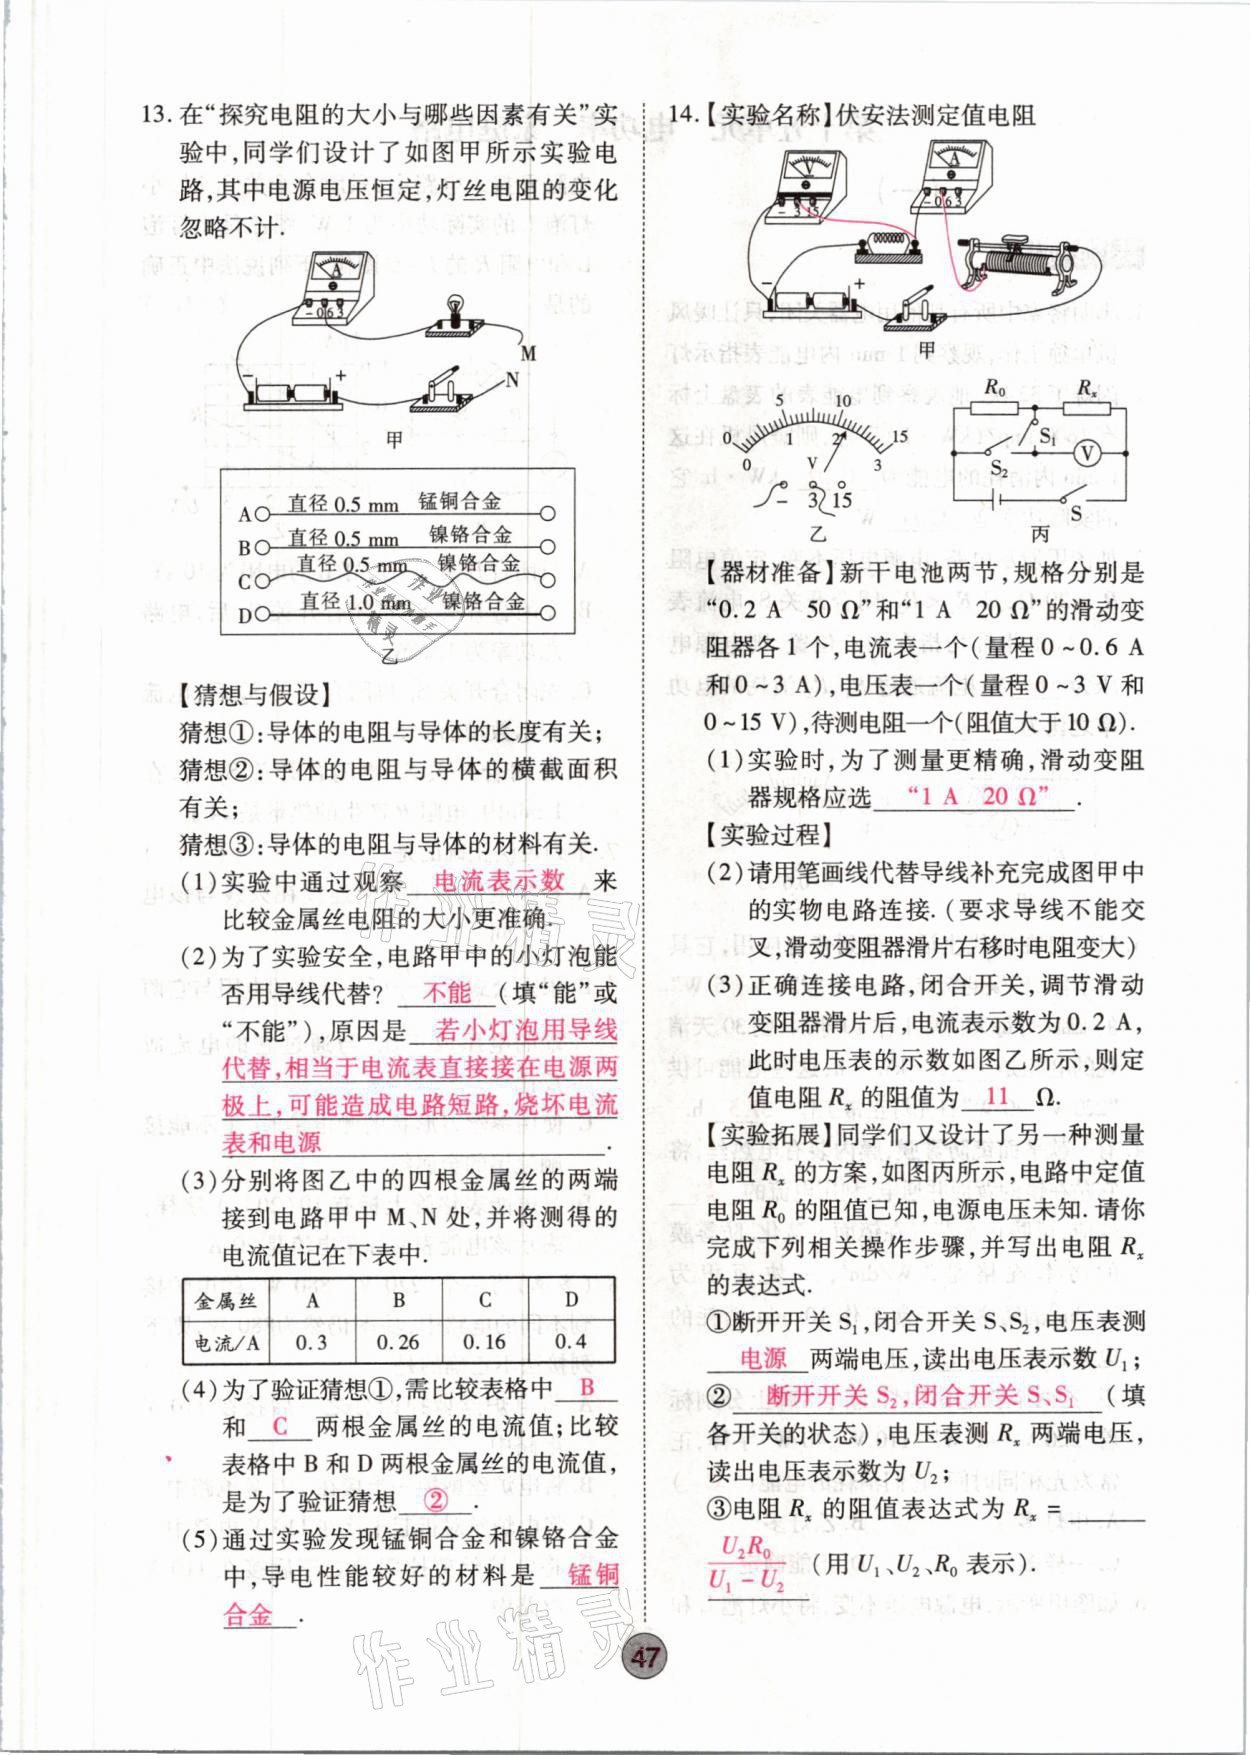 13. 在“探究电阻的大小与哪些因素有关”实
验中,同学们设计了如图甲所示实验电
路,其中电源电压恒定,灯丝电阻的变化
忽略不计.
A
-0.6 3
M
N
-
+
甲
A 直径 0.5 mm 锰铜合金
B 直径 0.5 mm 镍铬合金
C 直径 0.5 mm 镍铬合金
D 直径 1.0 mm 镍铬合金
乙
【猜想与假设】
猜想①:导体的电阻与导体的长度有关;
猜想②:导体的电阻与导体的横截面积
有关;
猜想③:导体的电阻与导体的材料有关.
(1)实验中通过观察 电流表示数 来
比较金属丝电阻的大小更准确.
(2)为了实验安全,电路甲中的小灯泡能
否用导线代替? 不能 (填“能”或
“不能”),原因是 若小灯泡用导线
代替,相当于电流表直接接在电源两
极上,可能造成电路短路,烧坏电流
表和电源 .
(3)分别将图乙中的四根金属丝的两端
接到电路甲中 M、N 处,并将测得的
电流值记在下表中.
金属丝 A B C D
电流/A 0.3 0.26 0.16 0.4
(4)为了验证猜想①,需比较表格中 B
和 C 两根金属丝的电流值;比较
表格中 B 和 D 两根金属丝的电流值,
是为了验证猜想 ② .
(5)通过实验发现锰铜合金和镍铬合金
中,导电性能较好的材料是 锰铜
合金 .
14.【实验名称】伏安法测定值电阻
V
- 3 15
A
-0.6 3
-
+
甲
0 5 10 15
0 1 2 3
V
- 3 15
乙
R0 Rx
S1
S2
V
S
丙
【器材准备】新干电池两节,规格分别是
“0.2 A 50 Ω”和“1 A 20 Ω”的滑动变
阻器各 1 个,电流表一个(量程 0~0.6 A
和 0~3 A),电压表一个(量程 0~3 V 和
0~15 V),待测电阻一个(阻值大于 10 Ω).
(1)实验时,为了测量更精确,滑动变阻
器规格应选 “1 A 20 Ω” .
【实验过程】
(2)请用笔画线代替导线补充完成图甲中
的实物电路连接.(要求导线不能交
叉,滑动变阻器滑片右移时电阻变大)
(3)正确连接电路,闭合开关,调节滑动
变阻器滑片后,电流表示数为 0.2 A,
此时电压表的示数如图乙所示,则定
值电阻 Rx 的阻值为 11 Ω.
【实验拓展】同学们又设计了另一种测量
电阻 Rx 的方案,如图丙所示,电路中定值
电阻 R0 的阻值已知,电源电压未知. 请你
完成下列相关操作步骤,并写出电阻 Rx
的表达式.
①断开开关 S1,闭合开关 S、S2,电压表测
电源 两端电压,读出电压表示数 U1;
② 断开开关 S2,闭合开关 S、S1 (填
各开关的状态),电压表测 Rx 两端电压,
读出电压表示数为 U2;
③电阻 Rx 的阻值表达式为 Rx =
U2R0/(U1 - U2) (用 U1、U2、R0 表示).
作业精灵
作业精灵
47